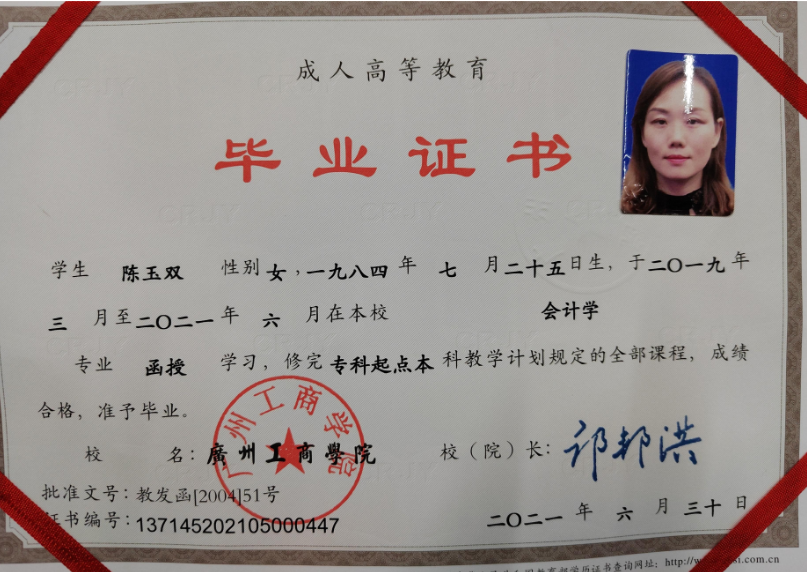 成人高等教育
毕业证书
学生 陈玉双 性别女，一九八四年 七 月二十五日生，于二〇一九年
三 月至二〇二一年 六 月在本校 会计学
专业 函授 学习，修完专科起点本科教学计划规定的全部课程，成绩
合格，准予毕业。
广州工商学院
校 名：廣州工商學院 校（院）长：邝邦洪
批准文号：教发函[2004]51号
证书编号：137145202105000447 二〇二一 年 六 月 三十 日
学历证书查询网址：http://w
si.com.cn